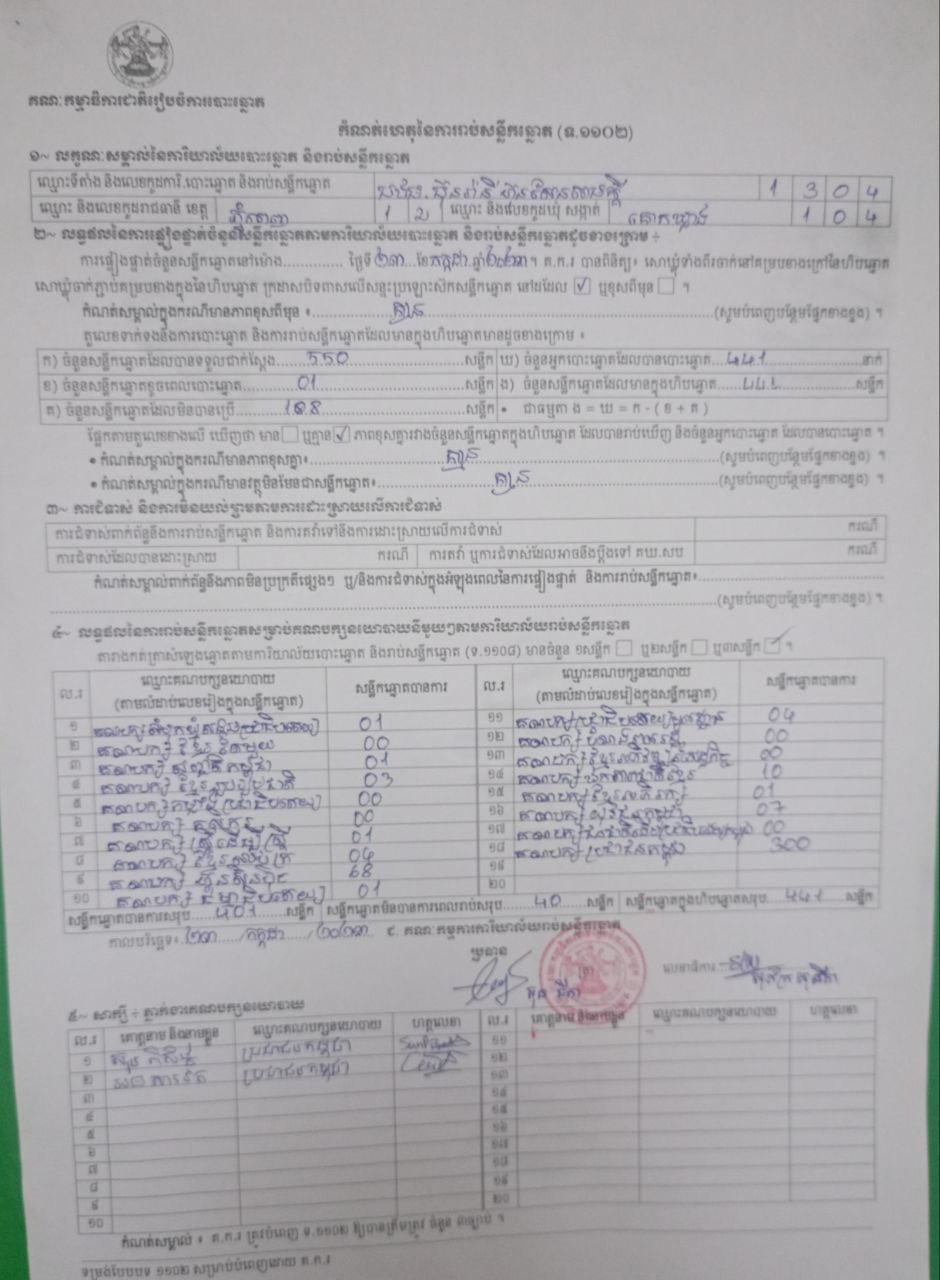 គណៈកម្មាធិការជាតិរៀបចំការបោះឆ្នោត
កំណត់ហេតុនៃការរាប់សន្លឹកឆ្នោត (ទ.១១០២)
១~ លក្ខណៈសម្គាល់នៃការិយាល័យបោះឆ្នោត និងរាប់សន្លឹកឆ្នោត
ឈ្មោះទីតាំង និងលេខកូដការិ.បោះឆ្នោត និងរាប់សន្លឹកឆ្នោត 1 3 0 4
ឈ្មោះ និងលេខកូដរាជធានី ខេត្ត ភ្នំពេញ 1 2 ឈ្មោះ និងលេខកូដឃុំ សង្កាត់ គោកឃ្លាង 1 0 4
២~ លទ្ធផលនៃការផ្ទៀងផ្ទាត់ចំនួនសន្លឹកឆ្នោតតាមការិយាល័យបោះឆ្នោត និងរាប់សន្លឹកឆ្នោតដូចខាងក្រោម ÷
ការផ្ទៀងផ្ទាត់ចំនួនសន្លឹកឆ្នោតនៅម៉ោង............. ថ្ងៃទី ២៣ ខែ កក្កដា ឆ្នាំ ២០២៣។ គ.ក.រ បានពិនិត្យ៖ សោឃ្មុំទាំងពីរចាក់នៅគម្របខាងក្រៅនៃហិបឆ្នោត
សោឃ្មុំចាក់ភ្ជាប់គម្របខាងក្នុងនៃហិបឆ្នោត ក្រដាសបិទពាសលើសន្ទះប្រឡោះសិកសន្លឹកឆ្នោត នៅដដែល ☑ ឬខុសពីមុន ☐ ។
កំណត់សម្គាល់ក្នុងករណីមានភាពខុសពីមុន ៖ គ្មាន (សូមបំពេញបន្ថែមផ្នែកខាងខ្នង) ។
តួលេខទាក់ទងនឹងការបោះឆ្នោត និងការរាប់សន្លឹកឆ្នោតដែលមានក្នុងហិបឆ្នោតមានដូចខាងក្រោម ៖
ក) ចំនួនសន្លឹកឆ្នោតដែលបានទទួលជាក់ស្តែង 550 សន្លឹក ឃ) ចំនួនអ្នកបោះឆ្នោតដែលបានបោះឆ្នោត 441 នាក់
ខ) ចំនួនសន្លឹកឆ្នោតខូចពេលបោះឆ្នោត 01 សន្លឹក ង) ចំនួនសន្លឹកឆ្នោតដែលមានក្នុងហិបឆ្នោត 441 សន្លឹក
គ) ចំនួនសន្លឹកឆ្នោតដែលមិនបានប្រើ 108 សន្លឹក • ជាធម្មតា ង = ឃ = ក - ( ខ + គ )
ផ្អែកតាមតួលេខខាងលើ ឃើញថា មាន ☐ ឬគ្មាន ☑ ភាពខុសគ្នារវាងចំនួនសន្លឹកឆ្នោតក្នុងហិបឆ្នោត ដែលបានរាប់ឃើញ និងចំនួនអ្នកបោះឆ្នោត ដែលបានបោះឆ្នោត ។
• កំណត់សម្គាល់ក្នុងករណីមានភាពខុសគ្នា៖ គ្មាន (សូមបំពេញបន្ថែមផ្នែកខាងខ្នង) ។
• កំណត់សម្គាល់ក្នុងករណីមានវត្ថុមិនមែនជាសន្លឹកឆ្នោត៖ គ្មាន (សូមបំពេញបន្ថែមផ្នែកខាងខ្នង) ។
៣~ ការជំទាស់ និងការមិនយល់ព្រមតាមការដោះស្រាយលើការជំទាស់
ការជំទាស់ពាក់ព័ន្ធនឹងការរាប់សន្លឹកឆ្នោត និងការតវ៉ាទៅនឹងការដោះស្រាយលើការជំទាស់ ករណី
ការជំទាស់ដែលបានដោះស្រាយ ករណី ការតវ៉ា ឬការជំទាស់ដែលអាចនឹងប្តឹងទៅ គឃ.សប ករណី
កំណត់សម្គាល់ពាក់ព័ន្ធនឹងភាពមិនប្រក្រតីផ្សេងៗ ឬ/និងការជំទាស់ក្នុងអំឡុងពេលនៃការផ្ទៀងផ្ទាត់ និងការរាប់សន្លឹកឆ្នោត៖
(សូមបំពេញបន្ថែមផ្នែកខាងខ្នង) ។
៤~ លទ្ធផលនៃការរាប់សន្លឹកឆ្នោតសម្រាប់គណបក្សនយោបាយនីមួយៗតាមការិយាល័យរាប់សន្លឹកឆ្នោត
តារាងកត់ត្រាសំឡេងឆ្នោតតាមការិយាល័យបោះឆ្នោត និងរាប់សន្លឹកឆ្នោត (ទ.១១០៨) មានចំនួន ១សន្លឹក ☐ ឬ២សន្លឹក ☐ ឬ៣សន្លឹក ☑
ល.រ ឈ្មោះគណបក្សនយោបាយ (តាមលំដាប់លេខរៀងក្នុងសន្លឹកឆ្នោត) សន្លឹកឆ្នោតបានការ ល.រ ឈ្មោះគណបក្សនយោបាយ (តាមលំដាប់លេខរៀងក្នុងសន្លឹកឆ្នោត) សន្លឹកឆ្នោតបានការ
១ គណបក្សសំបុកឃ្មុំសង្គមប្រជាធិបតេយ្យ 01
២ គណបក្សខ្មែរតែមួយ 00
៣ គណបក្ស កម្ពុជា 01
៤ គណបក្សខ្មែររួបរួមជាតិ 03
៥ គណបក្សកម្លាំងប្រជាធិបតេយ្យ 00
៦ គណបក្សកសិករ 00
៧ គណបក្សស្ត្រីដើម្បីស្ត្រី 01
៨ គណបក្សខ្មែរឈប់ក្រ 04
៩ គណបក្សហ៊្វុនស៊ិនប៉ិច 68
១០ គណបក្សធម្មាធិបតេយ្យ 01
១១ គណបក្សប្រជាធិបតេយ្យមូលដ្ឋាន 04
១២ គណបក្ស 00
១៣ គណបក្សខ្មែរអភិវឌ្ឍន៍សេដ្ឋកិច្ច 00
១៤ គណបក្សឯកភាពជាតិខ្មែរ 10
១៥ គណបក្សខ្មែរអភិរក្ស 01
១៦ គណបក្សយុវជនកម្ពុជា 07
១៧ គណបក្សជនជាតិដើមប្រជាធិបតេយ្យកម្ពុជា 00
១៨ គណបក្សប្រជាជនកម្ពុជា 300
១៩
២០
សន្លឹកឆ្នោតបានការសរុប 401 សន្លឹក សន្លឹកឆ្នោតមិនបានការពេលរាប់សរុប 40 សន្លឹក សន្លឹកឆ្នោតក្នុងហិបឆ្នោតសរុប 441 សន្លឹក
កាលបរិច្ឆេទ៖ ២៣ / កក្កដា / ២០២៣ ៩. គណៈកម្មការការិយាល័យរាប់សន្លឹកឆ្នោត
ប្រធាន ត្រា លេខាធិការ
៥~ សាក្សី ÷ ភ្នាក់ងារគណបក្សនយោបាយ
ល.រ គោត្តនាម និងនាមខ្លួន ឈ្មោះគណបក្សនយោបាយ ហត្ថលេខា ល.រ គោត្តនាម និងនាមខ្លួន ឈ្មោះគណបក្សនយោបាយ ហត្ថលេខា
១ ប្រជាជនកម្ពុជា ១១
២ ប្រជាជនកម្ពុជា ១២
៣ ១៣
៤ ១៤
៥ ១៥
៦ ១៦
៧ ១៧
៨ ១៨
៩ ១៩
១០ ២០
កំណត់សម្គាល់ ៖ គ.ក.រ ត្រូវបំពេញ ទ.១១០២ ឱ្យបានត្រឹមត្រូវ ចំនួន ៣ច្បាប់ ។
ទម្រង់បែបបទ ១១០២ សម្រាប់បំពេញដោយ គ.ក.រ